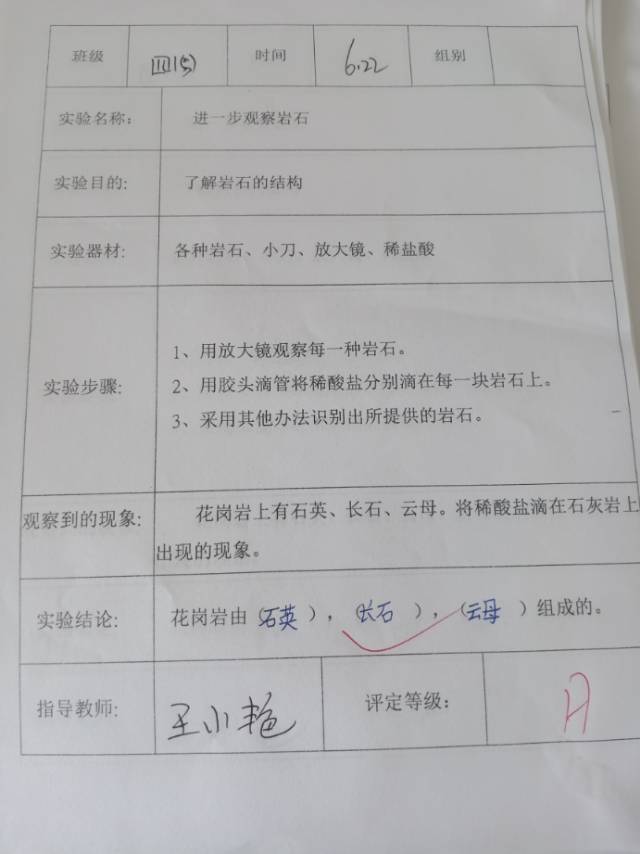 班级 四(5) 时间 6.22 组别
实验名称： 进一步观察岩石
实验目的: 了解岩石的结构
实验器材: 各种岩石、小刀、放大镜、稀盐酸
实验步骤:
1、用放大镜观察每一种岩石。
2、用胶头滴管将稀酸盐分别滴在每一块岩石上。
3、采用其他办法识别出所提供的岩石。
观察到的现象:
花岗岩上有石英、长石、云母。将稀酸盐滴在石灰岩上
出现的现象。
实验结论: 花岗岩由（石英），（长石），（云母）组成的。
指导教师: 王小艳 评定等级: A